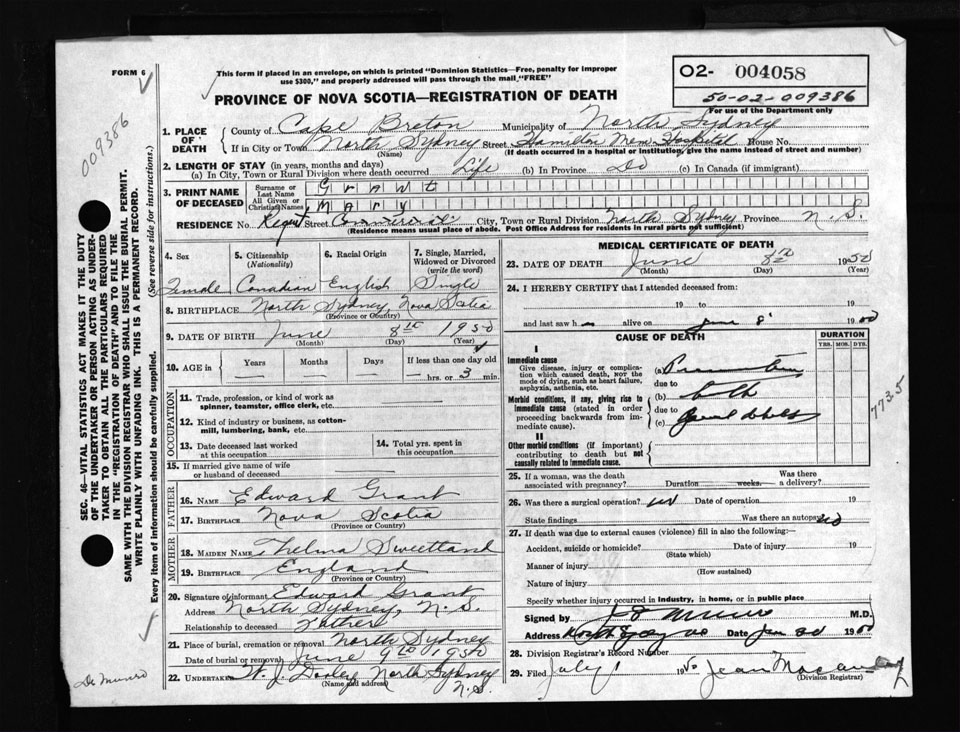 FORM 6
This form if placed in an envelope, on which is printed "Dominion Statistics—Free, penalty for improper
use $300," and properly addressed will pass through the mail "FREE"
PROVINCE OF NOVA SCOTIA—REGISTRATION OF DEATH
02- 004058
50-02-009386
For use of the Department only
009386
1. PLACE OF DEATH
County of Cape Breton Municipality of North Sydney
If in City or Town North Sydney Street Hamilton Mem Hospital House No.
(Name) (If death occurred in a hospital or institution, give the name instead of street and number)
2. LENGTH OF STAY (in years, months and days)
(a) In City, Town or Rural Division where death occurred Life (b) In Province Do (c) In Canada (if immigrant)
3. PRINT NAME OF DECEASED
Surname or Last Name Grant
All Given or Christian Names Mary
RESIDENCE No. Street Commercial City, Town or Rural Division North Sydney Province N.S.
(Residence means usual place of abode. Post Office Address for residents in rural parts not sufficient)
4. Sex Female
5. Citizenship (Nationality) Canadian
6. Racial Origin English
7. Single, Married, Widowed or Divorced (write the word) Single
8. BIRTHPLACE North Sydney, Nova Scotia
(Province or Country)
9. DATE OF BIRTH June 8th 1950
(Month) (Day) (Year)
10. AGE in Years Months Days If less than one day old
hrs. or 3 min.
OCCUPATION
11. Trade, profession, or kind of work as
spinner, teamster, office clerk, etc.
12. Kind of industry or business, as cotton-
mill, lumbering, bank, etc.
13. Date deceased last worked
at this occupation
14. Total yrs. spent in
this occupation
15. If married give name of wife
or husband of deceased
FATHER
16. NAME Edward Grant
17. BIRTHPLACE Nova Scotia
(Province or Country)
MOTHER
18. MAIDEN NAME Thelma Sweetland
19. BIRTHPLACE England
(Province or Country)
20. Signature of informant Edward Grant
Address North Sydney, N.S.
Relationship to deceased Father
21. Place of burial, cremation or removal North Sydney
Date of burial or removal June 9th 1950
22. UNDERTAKER W. J. Dooley North Sydney
(Name and address) N.S.
MEDICAL CERTIFICATE OF DEATH
23. DATE OF DEATH June 8th 1950
(Month) (Day) (Year)
24. I HEREBY CERTIFY that I attended deceased from:
19 to 19
and last saw h alive on June 8 19
CAUSE OF DEATH
DURATION
YRS. MOS. DYS.
I
Immediate cause
Give disease, injury or complica-
tion which caused death, NOT the
mode of dying, such as heart failure,
asphyxia, asthenia, etc.
(a)
due to
Morbid conditions, if any, giving rise to
immediate cause (stated in order
proceeding backwards from im-
mediate cause).
(b)
due to
(c)
II
Other morbid conditions (if important)
contributing to death but not
causally related to immediate cause.
7735
25. If a woman, was the death
associated with pregnancy? Duration weeks. Was there
a delivery?
26. Was there a surgical operation? no Date of operation 19
State findings Was there an autopsy? no
27. If death was due to external causes (violence) fill in also the following:
Accident, suicide or homicide? Date of injury 19
(State which)
Manner of injury
(How sustained)
Nature of injury
Specify whether injury occurred in industry, in home, or in public place
Signed by M.D.
Address Date 19
28. Division Registrar's Record Number
29. Filed July 1 1950 Jean
(Division Registrar)
SEC. 46—VITAL STATISTICS ACT MAKES IT THE DUTY
OF THE UNDERTAKER OR PERSON ACTING AS UNDER-
TAKER TO OBTAIN ALL THE PARTICULARS REQUIRED
IN THE "REGISTRATION OF DEATH" AND TO FILE THE
SAME WITH THE DIVISION REGISTRAR WHO SHALL ISSUE THE BURIAL PERMIT.
WRITE PLAINLY WITH UNFADING INK. THIS IS A PERMANENT RECORD.
Every item of information should be carefully supplied. (See reverse side for instructions.)
Dr Munro